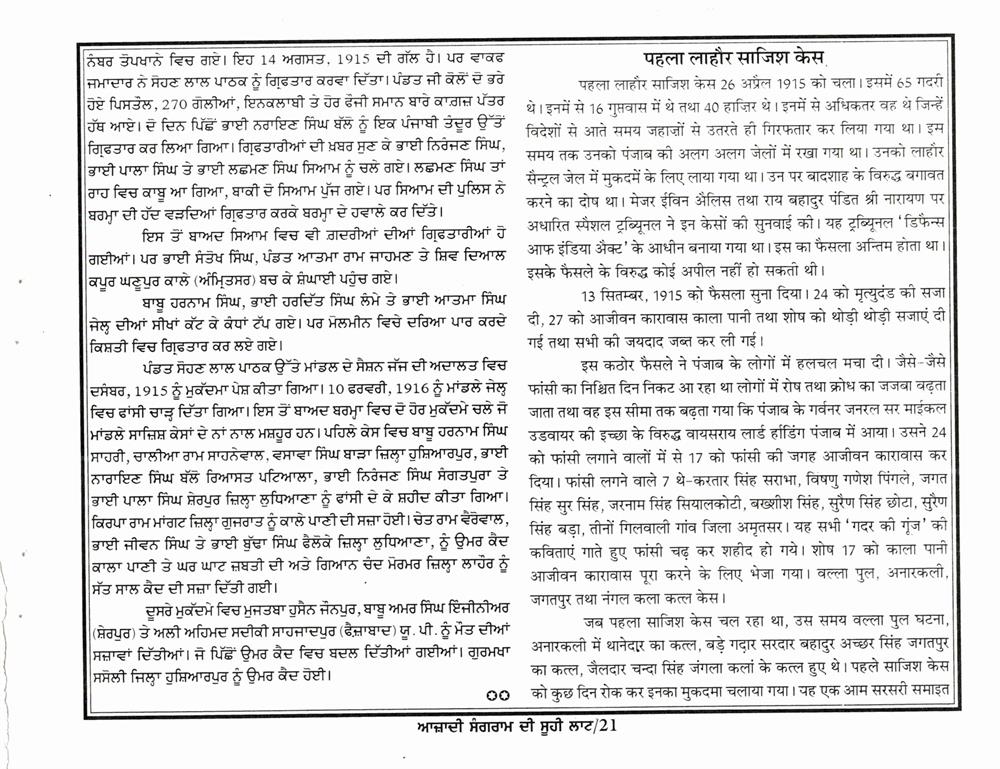 ਨੰਬਰ ਤੋਪਖਾਨੇ ਵਿਚ ਗਏ। ਇਹ 14 ਅਗਸਤ, 1915 ਦੀ ਗੱਲ ਹੈ। ਪਰ ਵਾਕਫ
ਜਮਾਦਾਰ ਨੇ ਸੋਹਣ ਲਾਲ ਪਾਠਕ ਨੂੰ ਗ੍ਰਿਫਤਾਰ ਕਰਵਾ ਦਿੱਤਾ। ਪੰਡਤ ਜੀ ਕੋਲੋਂ ਦੋ ਭਰੇ
ਹੋਏ ਪਿਸਤੌਲ, 270 ਗੋਲੀਆਂ, ਇਨਕਲਾਬੀ ਤੇ ਹੋਰ ਫੌਜੀ ਸਮਾਨ ਬਾਰੇ ਕਾਗਜ਼ ਪੱਤਰ
ਹੱਥ ਆਏ। ਦੋ ਦਿਨ ਪਿੱਛੋਂ ਭਾਈ ਨਰਾਇਣ ਸਿੰਘ ਬੱਲੋ ਨੂੰ ਇਕ ਪੰਜਾਬੀ ਤੰਦੂਰ ਉੱਤੋਂ
ਗ੍ਰਿਫਤਾਰ ਕਰ ਲਿਆ ਗਿਆ। ਗ੍ਰਿਫਤਾਰੀਆਂ ਦੀ ਖ਼ਬਰ ਸੁਣ ਕੇ ਭਾਈ ਨਿਰੰਜਣ ਸਿੰਘ,
ਭਾਈ ਪਾਲਾ ਸਿੰਘ ਤੇ ਭਾਈ ਲਛਮਣ ਸਿੰਘ ਸਿਆਮ ਨੂੰ ਚਲੇ ਗਏ। ਲਛਮਣ ਸਿੰਘ ਤਾਂ
ਰਾਹ ਵਿਚ ਕਾਬੂ ਆ ਗਿਆ, ਬਾਕੀ ਦੋ ਸਿਆਮ ਪੁੱਜ ਗਏ। ਪਰ ਸਿਆਮ ਦੀ ਪੁਲਿਸ ਨੇ
ਬਰਮ੍ਹਾ ਦੀ ਹੱਦ ਵੜਦਿਆਂ ਗ੍ਰਿਫਤਾਰ ਕਰਕੇ ਬਰਮ੍ਹਾ ਦੇ ਹਵਾਲੇ ਕਰ ਦਿੱਤੇ।
ਇਸ ਤੋਂ ਬਾਅਦ ਸਿਆਮ ਵਿਚ ਵੀ ਗ਼ਦਰੀਆਂ ਦੀਆਂ ਗ੍ਰਿਫਤਾਰੀਆਂ ਹੋ
ਗਈਆਂ। ਪਰ ਭਾਈ ਸੰਤੋਖ ਸਿੰਘ, ਪੰਡਤ ਆਤਮਾ ਰਾਮ ਜਾਹਮਣ ਤੇ ਸ਼ਿਵ ਦਿਆਲ
ਕਪੂਰ ਘਣੂਪੁਰ ਕਾਲੇ (ਅੰਮ੍ਰਿਤਸਰ) ਬਚ ਕੇ ਸ਼ੰਘਾਈ ਪਹੁੰਚ ਗਏ।
ਬਾਬੂ ਹਰਨਾਮ ਸਿੰਘ, ਭਾਈ ਹਰਦਿੱਤ ਸਿੰਘ ਲੰਮੇ ਤੇ ਭਾਈ ਆਤਮਾ ਸਿੰਘ
ਜੇਲ੍ਹ ਦੀਆਂ ਸੀਖਾਂ ਕੱਟ ਕੇ ਕੰਧਾਂ ਟੱਪ ਗਏ। ਪਰ ਮੋਲਮੀਨ ਵਿਚੇ ਦਰਿਆ ਪਾਰ ਕਰਦੇ
ਕਿਸ਼ਤੀ ਵਿਚ ਗ੍ਰਿਫਤਾਰ ਕਰ ਲਏ ਗਏ।
ਪੰਡਤ ਸੋਹਣ ਲਾਲ ਪਾਠਕ ਉੱਤੇ ਮਾਂਡਲ ਦੇ ਸੈਸ਼ਨ ਜੱਜ ਦੀ ਅਦਾਲਤ ਵਿਚ
ਦਸੰਬਰ, 1915 ਨੂੰ ਮੁਕੱਦਮਾ ਪੇਸ਼ ਕੀਤਾ ਗਿਆ। 10 ਫਰਵਰੀ, 1916 ਨੂੰ ਮਾਂਡਲੇ ਜੇਲ੍ਹ
ਵਿਚ ਫਾਂਸੀ ਚਾੜ੍ਹ ਦਿੱਤਾ ਗਿਆ। ਇਸ ਤੋਂ ਬਾਅਦ ਬਰਮ੍ਹਾ ਵਿਚ ਦੋ ਹੋਰ ਮੁਕੱਦਮੇ ਚਲੇ ਜੋ
ਮਾਂਡਲੇ ਸਾਜ਼ਿਸ਼ ਕੇਸਾਂ ਦੇ ਨਾਂ ਨਾਲ ਮਸ਼ਹੂਰ ਹਨ। ਪਹਿਲੇ ਕੇਸ ਵਿਚ ਬਾਬੂ ਹਰਨਾਮ ਸਿੰਘ
ਸਾਹਰੀ, ਚਾਲੀਆ ਰਾਮ ਸਾਹਨੇਵਾਲ, ਵਸਾਵਾ ਸਿੰਘ ਬਾੜਾ ਜ਼ਿਲ੍ਹਾ ਹੁਸ਼ਿਆਰਪੁਰ, ਭਾਈ
ਨਾਰਾਇਣ ਸਿੰਘ ਬੱਲੋ ਰਿਆਸਤ ਪਟਿਆਲਾ, ਭਾਈ ਨਿਰੰਜਣ ਸਿੰਘ ਸੰਗਤਪੁਰਾ ਤੇ
ਭਾਈ ਪਾਲਾ ਸਿੰਘ ਸ਼ੇਰਪੁਰ ਜ਼ਿਲ੍ਹਾ ਲੁਧਿਆਣਾ ਨੂੰ ਫਾਂਸੀ ਦੇ ਕੇ ਸ਼ਹੀਦ ਕੀਤਾ ਗਿਆ।
ਕਿਰਪਾ ਰਾਮ ਮਾਂਗਟ ਜ਼ਿਲ੍ਹਾ ਗੁਜਰਾਤ ਨੂੰ ਕਾਲੇ ਪਾਣੀ ਦੀ ਸਜ਼ਾ ਹੋਈ। ਚੇਤ ਰਾਮ ਵੈਰੋਵਾਲ,
ਭਾਈ ਜੀਵਨ ਸਿੰਘ ਤੇ ਭਾਈ ਬੁੱਢਾ ਸਿੰਘ ਫੈਲੋਕੇ ਜ਼ਿਲ੍ਹਾ ਲੁਧਿਆਣਾ, ਨੂੰ ਉਮਰ ਕੈਦ
ਕਾਲਾ ਪਾਣੀ ਤੇ ਘਰ ਘਾਟ ਜ਼ਬਤੀ ਦੀ ਅਤੇ ਗਿਆਨ ਚੰਦ ਮੋਰਮਰ ਜ਼ਿਲ੍ਹਾ ਲਾਹੌਰ ਨੂੰ
ਸੱਤ ਸਾਲ ਕੈਦ ਦੀ ਸਜ਼ਾ ਦਿੱਤੀ ਗਈ।
ਦੂਸਰੇ ਮੁਕੱਦਮੇ ਵਿਚ ਮੁਜਤਬਾ ਹੁਸੈਨ ਜੌਨਪੁਰ, ਬਾਬੂ ਅਮਰ ਸਿੰਘ ਇੰਜੀਨੀਅਰ
(ਸ਼ੇਰਪੁਰ) ਤੇ ਅਲੀ ਅਹਿਮਦ ਸਦੀਕੀ ਸਾਹਜਾਦਪੁਰ (ਫੈਜ਼ਾਬਾਦ) ਯੂ. ਪੀ. ਨੂੰ ਮੌਤ ਦੀਆਂ
ਸਜ਼ਾਵਾਂ ਦਿੱਤੀਆਂ। ਜੋ ਪਿੱਛੋਂ ਉਮਰ ਕੈਦ ਵਿਚ ਬਦਲ ਦਿੱਤੀਆਂ ਗਈਆਂ। ਗੁਰਮਖਾ
ਸਸੋਲੀ ਜਿਲ੍ਹਾ ਹੁਸ਼ਿਆਰਪੁਰ ਨੂੰ ਉਮਰ ਕੈਦ ਹੋਈ।
पहला लाहौर साजिश केस
पहला लाहौर साजिश केस 26 अप्रैल 1915 को चला। इसमें 65 गदरी
थे। इनमें से 16 गुप्तवास में थे तथा 40 हाज़िर थे। इनमें से अधिकतर वह थे जिन्हें
विदेशों से आते समय जहाजों से उतरते ही गिरफतार कर लिया गया था। इस
समय तक उनको पंजाब की अलग अलग जेलों में रखा गया था। उनको लाहौर
सैन्ट्रल जेल में मुकदमें के लिए लाया गया था। उन पर बादशाह के विरुद्ध बगावत
करने का दोष था। मेजर ईविन अैलिस तथा राय बहादुर पंडित श्री नारायण पर
अधारित स्पैशल ट्रब्यिूनल ने इन केसों की सुनवाई की। यह ट्रब्यिूनल 'डिफैन्स
आफ इंडिया अैक्ट' के आधीन बनाया गया था। इस का फैसला अन्तिम होता था।
इसके फैसले के विरुद्ध कोई अपील नहीं हो सकती थी।
13 सितम्बर, 1915 को फैसला सुना दिया। 24 को मृत्युदंड की सजा
दी, 27 को आजीवन कारावास काला पानी तथा शोष को थोड़ी थोड़ी सजाएं दी
गई तथा सभी की जयदाद जब्त कर ली गई।
इस कठोर फैसले ने पंजाब के लोगों में हलचल मचा दी। जैसे-जैसे
फांसी का निश्चित दिन निकट आ रहा था लोगों में रोष तथा क्रोध का जजवा वढ़ता
जाता तथा वह इस सीमा तक बढ़ता गया कि पंजाब के गर्वनर जनरल सर माईकल
उडवायर की इच्छा के विरुद्ध वायसराय लार्ड हार्डिग पंजाब में आया। उसने 24
को फांसी लगाने वालों में से 17 को फांसी की जगह आजीवन कारावास कर
दिया। फांसी लगने वाले 7 थे-करतार सिंह सराभा, विषणु गणेश पिंगले, जगत
सिंह सुर सिंह, जरनाम सिंह सियालकोटी, बख्शीश सिंह, सुरैण सिंह छोटा, सुरैण
सिंह बड़ा, तीनों गिलवाली गांव जिला अमृतसर। यह सभी 'गदर की गूंज' की
कविताएं गाते हुए फांसी चढ़ कर शहीद हो गये। शोष 17 को काला पानी
आजीवन कारावास पूरा करने के लिए भेजा गया। वल्ला पुल, अनारकली,
जगतपुर तथा नंगल कला कत्ल केस।
जब पहला साजिश केस चल रहा था, उस समय वल्ला पुल घटना,
अनारकली में थानेदार का कत्ल, बड़े गद्दार सरदार बहादुर अच्छर सिंह जगतपुर
का कत्ल, जैलदार चन्दा सिंह जंगला कलां के कत्ल हुए थे। पहले साजिश केस
को कुछ दिन रोक कर इनका मुकदमा चलाया गया। यह एक आम सरसरी समाइत
ਆਜ਼ਾਦੀ ਸੰਗਰਾਮ ਦੀ ਸੂਹੀ ਲਾਟ/21